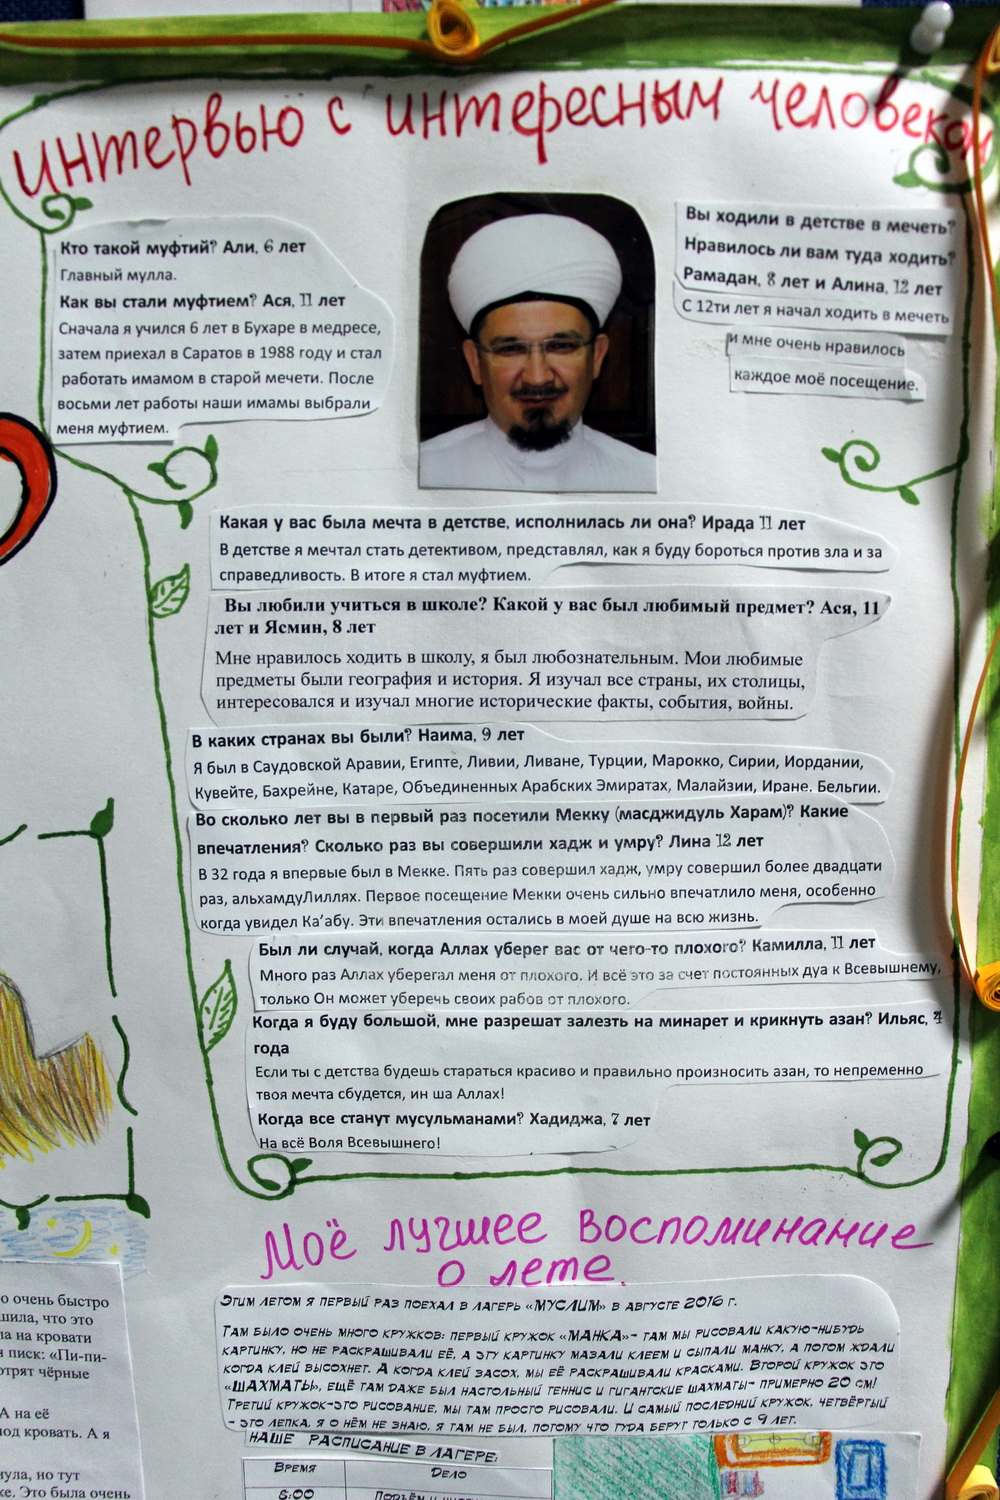 интервью с интересным человеком
Кто такой муфтий? Али, 6 лет
Главный мулла.
Как вы стали муфтием? Ася, 11 лет
Сначала я учился 6 лет в Бухаре в медресе,
затем приехал в Саратов в 1988 году и стал
работать имамом в старой мечети. После
восьми лет работы наши имамы выбрали
меня муфтием.
Вы ходили в детстве в мечеть?
Нравилось ли вам туда ходить?
Рамадан, 8 лет и Алина, 12 лет
С 12ти лет я начал ходить в мечеть
и мне очень нравилось
каждое моё посещение.
Какая у вас была мечта в детстве, исполнилась ли она? Ирада 11 лет
В детстве я мечтал стать детективом, представлял, как я буду бороться против зла и за
справедливость. В итоге я стал муфтием.
Вы любили учиться в школе? Какой у вас был любимый предмет? Ася, 11
лет и Ясмин, 8 лет
Мне нравилось ходить в школу, я был любознательным. Мои любимые
предметы были география и история. Я изучал все страны, их столицы,
интересовался и изучал многие исторические факты, события, войны.
В каких странах вы были? Наима, 9 лет
Я был в Саудовской Аравии, Египте, Ливии, Ливане, Турции, Марокко, Сирии, Иордании,
Кувейте, Бахрейне, Катаре, Объединенных Арабских Эмиратах, Малайзии, Иране. Бельгии.
Во сколько лет вы в первый раз посетили Мекку (масджидуль Харам)? Какие
впечатления? Сколько раз вы совершили хадж и умру? Лина 12 лет
В 32 года я впервые был в Мекке. Пять раз совершил хадж, умру совершил более двадцати
раз, альхамдуЛиллях. Первое посещение Мекки очень сильно впечатлило меня, особенно
когда увидел Ка’абу. Эти впечатления остались в моей душе на всю жизнь.
Был ли случай, когда Аллах уберег вас от чего-то плохого? Камилла, 11 лет
Много раз Аллах уберегал меня от плохого. И всё это за счет постоянных дуа к Всевышнему,
только Он может уберечь своих рабов от плохого.
Когда я буду большой, мне разрешат залезть на минарет и крикнуть азан? Ильяс, 4
года
Если ты с детства будешь стараться красиво и правильно произносить азан, то непременно
твоя мечта сбудется, ин ша Аллах!
Когда все станут мусульманами? Хадиджа, 7 лет
На всё Воля Всевышнего!
Моё лучшее воспоминание
о лете.
Этим летом я первый раз поехал в лагерь «Муслим» в августе 2016 г.
Там было очень много кружков: первый кружок «Манка»- там мы рисовали какую-нибудь
картинку, но не раскрашивали её, а эту картинку мазали клеем и сыпали манку, а потом ждали
когда клей высохнет. А когда клей засох, мы её раскрашивали красками. Второй кружок это
«Шахматы», ещё там даже был настольный теннис и гигантские шахматы- примерно 20 см!
Третий кружок-это рисование, мы там просто рисовали. И самый последний кружок, четвёртый
- это лепка, я о нём не знаю, я там не был, потому что туда берут только с 9 лет.
Наше расписание в лагере:
Время Дело
6:00 Подъём и
о очень быстро
шила, что это
ла на кровати
писк: «Пи-пи-
отрят чёрные
А на её
под кровать. А я
нула, но тут
же. Это была очень